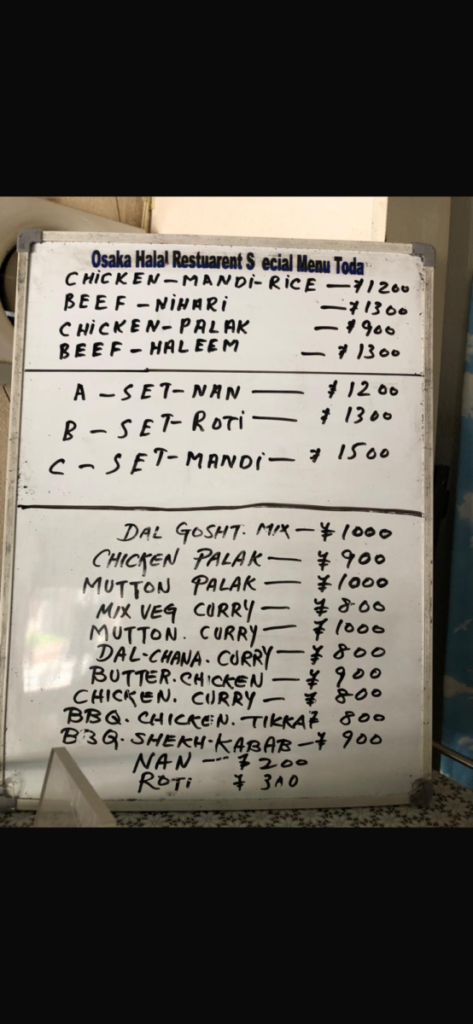 Osaka Halal Restuarent S ecial Menu Toda
CHICKEN-MANDI-RICE — ¥1200
BEEF-NIHARI — ¥1300
CHICKEN-PALAK — ¥900
BEEF-HALEEM — ¥1300
A-SET-NAN — ¥1200
B-SET-ROTI — ¥1300
C-SET-MANDI — ¥1500
DAL GOSHT. MIX — ¥1000
CHICKEN PALAK — ¥900
MUTTON PALAK — ¥1000
MIX VEG CURRY — ¥800
MUTTON. CURRY — ¥1000
DAL-CHANA. CURRY — ¥800
BUTTER.CHICKEN — ¥900
CHICKEN. CURRY — ¥800
BBQ. CHICKEN. TIKKA ¥ 800
BBQ. SHEKH-KABAB — ¥900
NAN --- ¥200
ROTI ¥